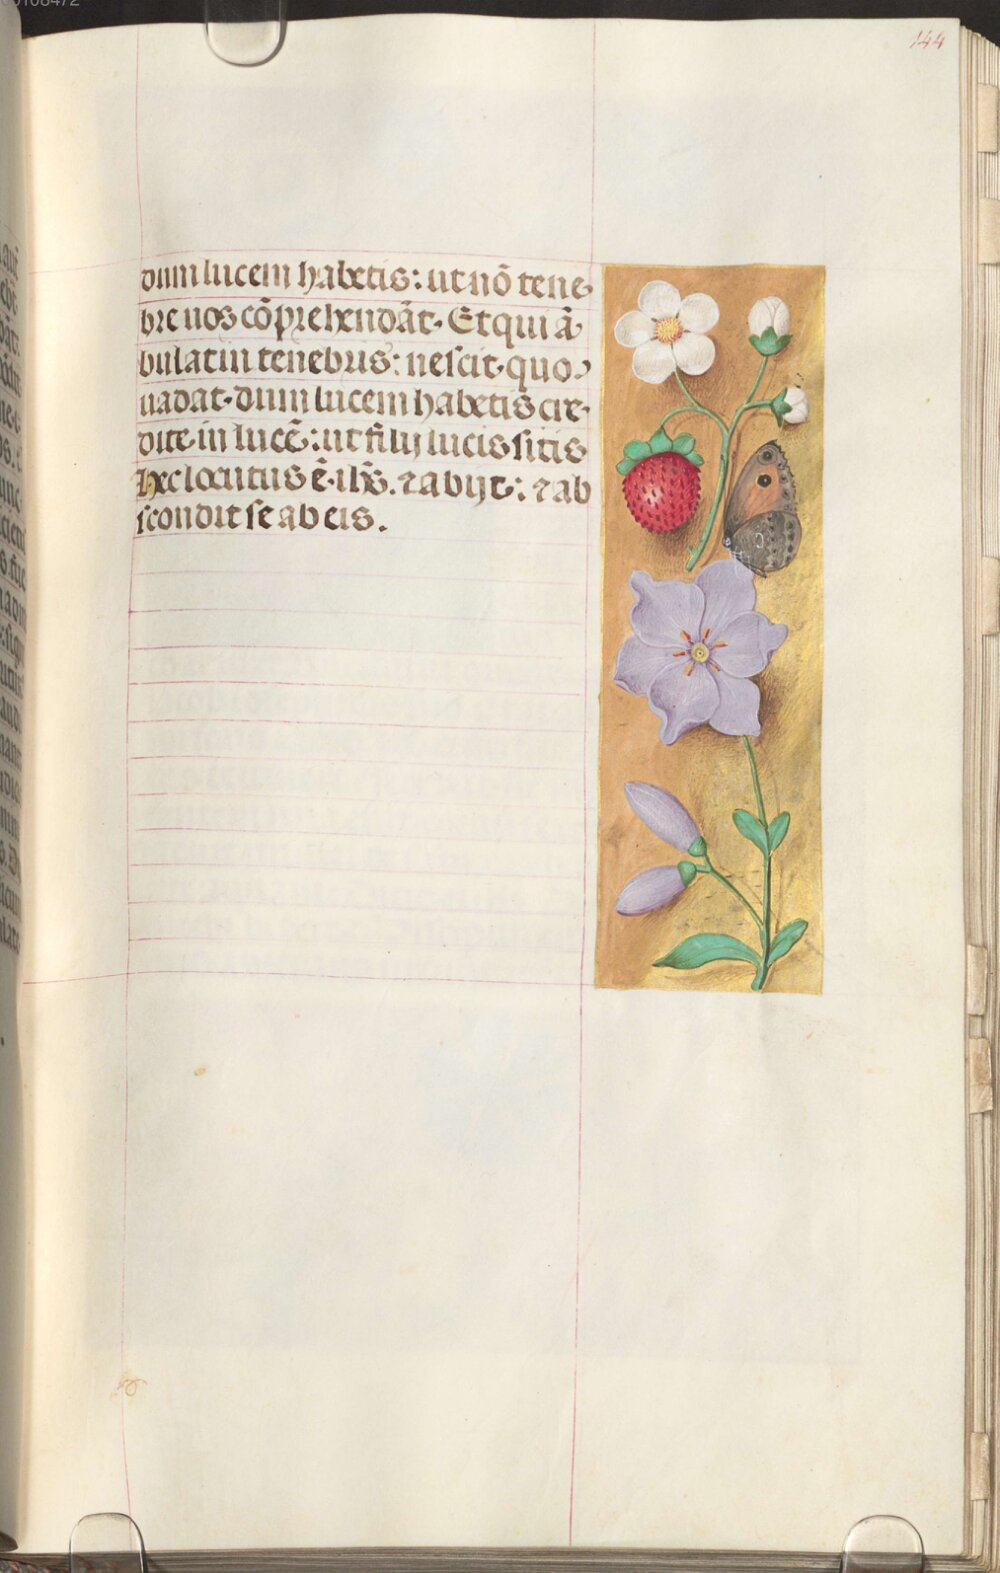 144
dum lucem habetis: ut nō tene
bre uos cōprehendāt. Et qui ā
bulat in tenebris: nescit quo
uadat. dum lucem habetis cre
dite in lucē: ut filij lucis sitis
Hec locutus ē ihs̄. ⁊ abijt: ⁊ ab
scondit se ab eis.